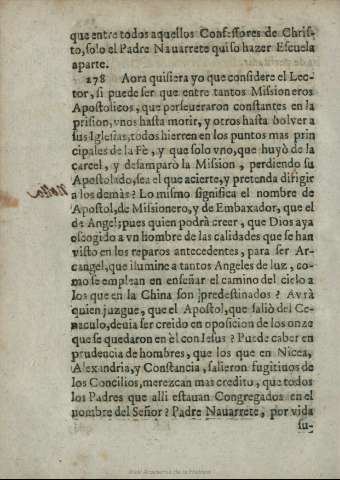 que entre todos aquellos Confessores de Chris-
to, solo el Padre Nauarrete quiso hazer Escuela
aparte.
278 Aora quisiera yo que considere el Lec-
tor, si puede ser que entre tantos Missioneros
Apostolicos, que perseueraron constantes en la
prision, vnos hasta morir, y otros hasta bolver a
sus Iglesias, todos hierren en los puntos mas prin
cipales de la Fè, y que solo vno, que huyò de la
carcel, y desamparò la Mission, perdiendo su
Apostolado, sea el que acierte, y pretenda dirigir
Nota
a los demàs? Lo mismo significa el nombre de
Apostol, de Missionero, y de Embaxador, que el
de Angel; pues quien podrà creer, que Dios aya
escogido a vn hombre de las calidades que se han
visto en los reparos antecedentes, para ser Ar-
cangel, que ilumine a tantos Angeles de luz, co-
mo se emplean en enseñar el camino del cielo a
los que en la China son predestinados? Avrà
quien juzgue, que el Apostol, que saliò del Ce-
naculo, deuia ser creido en oposicion de los onze
que se quedaron en èl con Iesus? Puede caber en
prudencia de hombres, que los que en Nicea,
Alexandria, y Constancia, salieron fugitiuos de
los Concilios, merezcan mas credito, que todos
los Padres que alli estauan Congregados en el
nombre del Señor? Padre Nauarrete, por vida
su-
Real Academia de la Historia